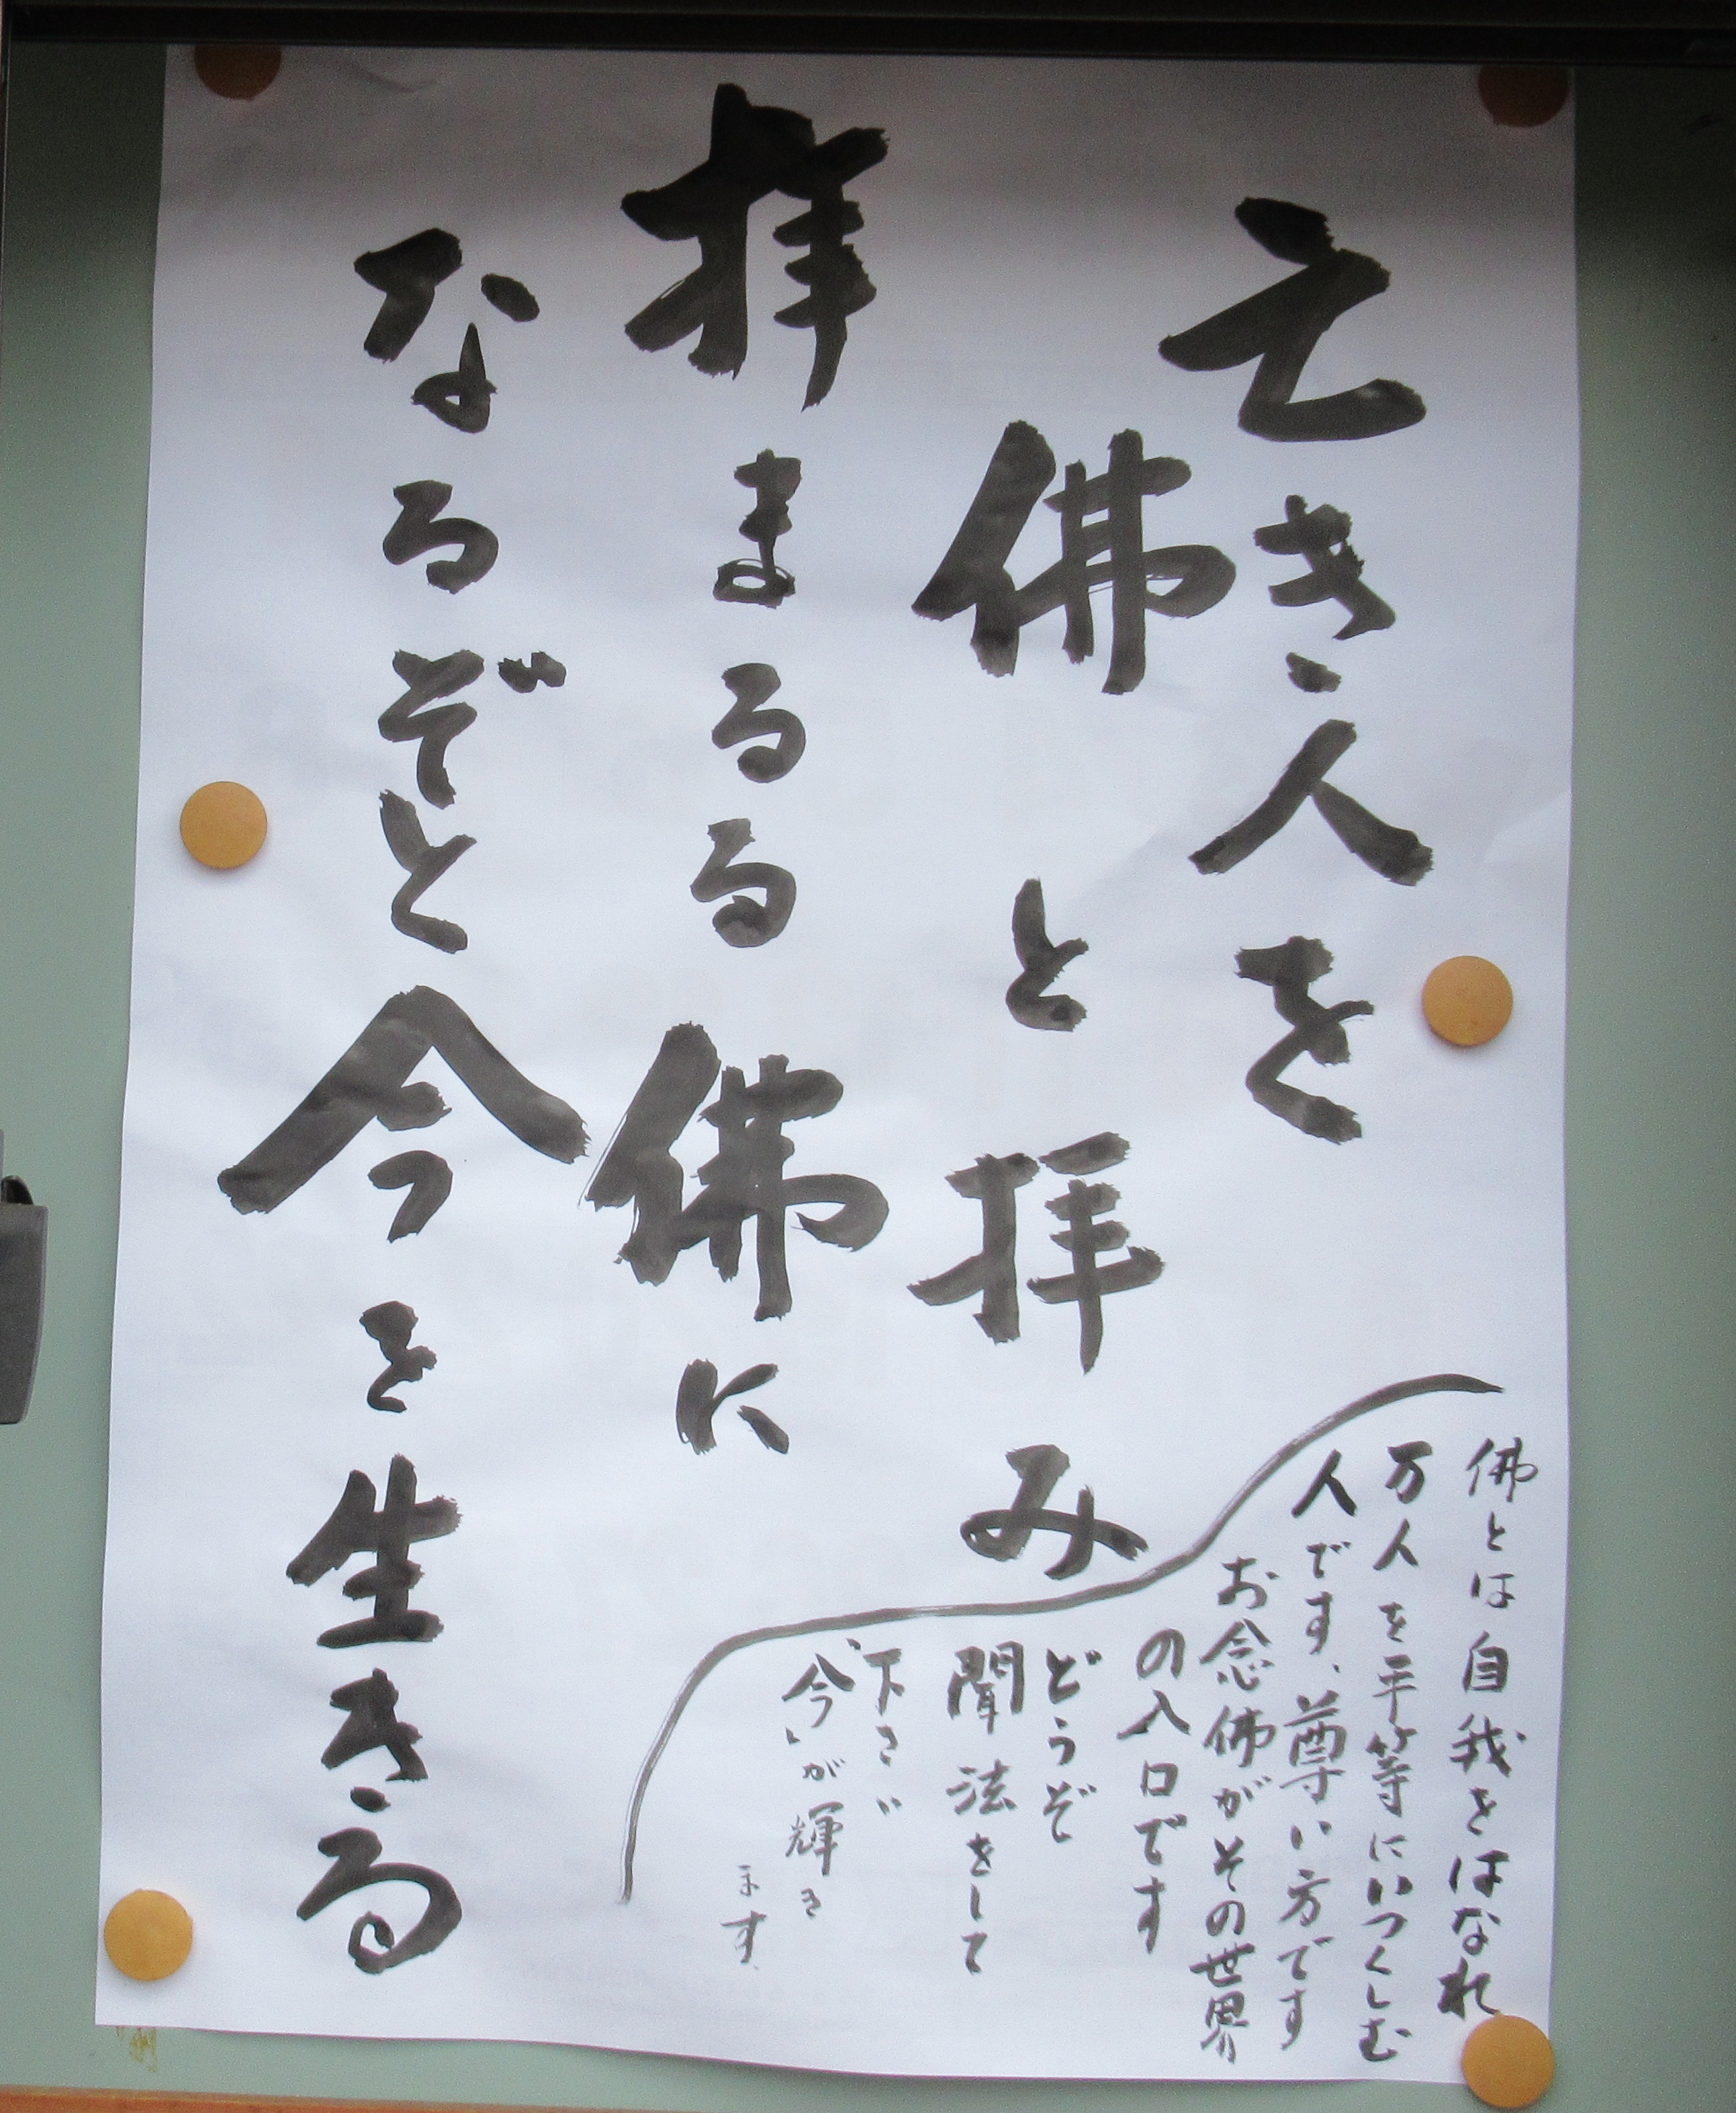 亡き人を
佛と拝み
拝まるる佛に
なるぞと今を生きる
佛とは自我をはなれ
万人を平等にいつくしむ
人です、尊い方です
お念佛がその世界
の入口です
どうぞ
聞法をして
下さい
今が輝き
ます